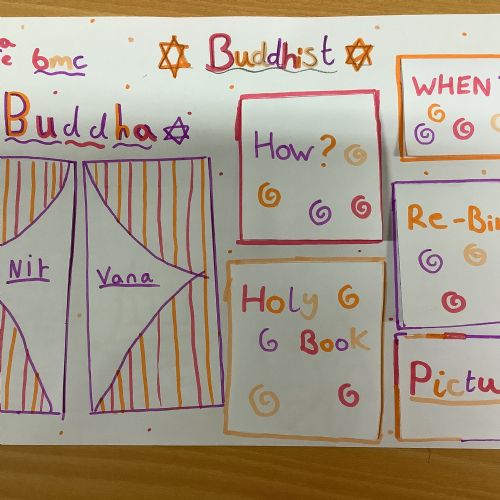 6mc
Buddhist
Buddha
WHEN?
How?
Re-Bir
Nir
Vana
Holy
Book
Pictu